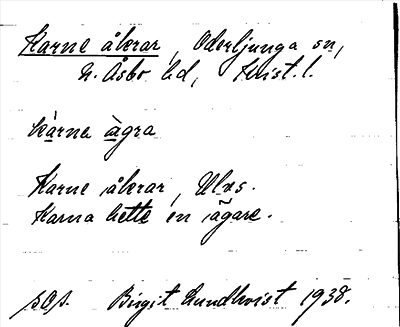 Karne åkrar, Oderljunga sn,
N. Åsbo hd, Krist. l.
kàrna àgra
Karne åkrar, Ulxs.
Karna hette en ägare.
Birgit Lundkvist 1938.